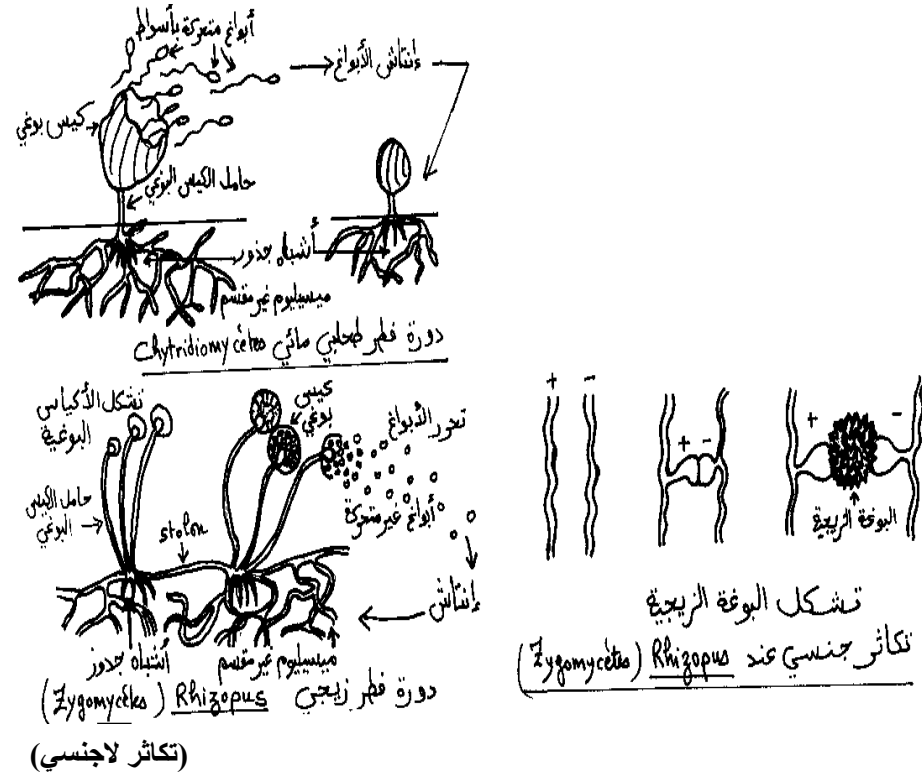 أبواغ متحركة بأسواط
إنتاش الأبواغ
كيس بوغي
حامل الكيس البوغي
أشباه جذور
ميسيليوم غير مقسم
دورة فطر طحلبي مائي Chytridiomycétes
تشكل الأكياس
البوغية
كيس
بوغي
تحرر الأبواغ
حامل الكيس
البوغي
stolon
أبواغ غير متحركة
إنتاش
أشباه جذور
ميسيليوم غير مقسم
دورة فطر زيجي Rhizopus (Zygomycétes)
(تكاثر لاجنسي)
+ -
+ -
+ -
البوغة الزيجية
تشكل البوغة الزيجية
تكاثر جنسي عند Rhizopus (Zygomycétes)